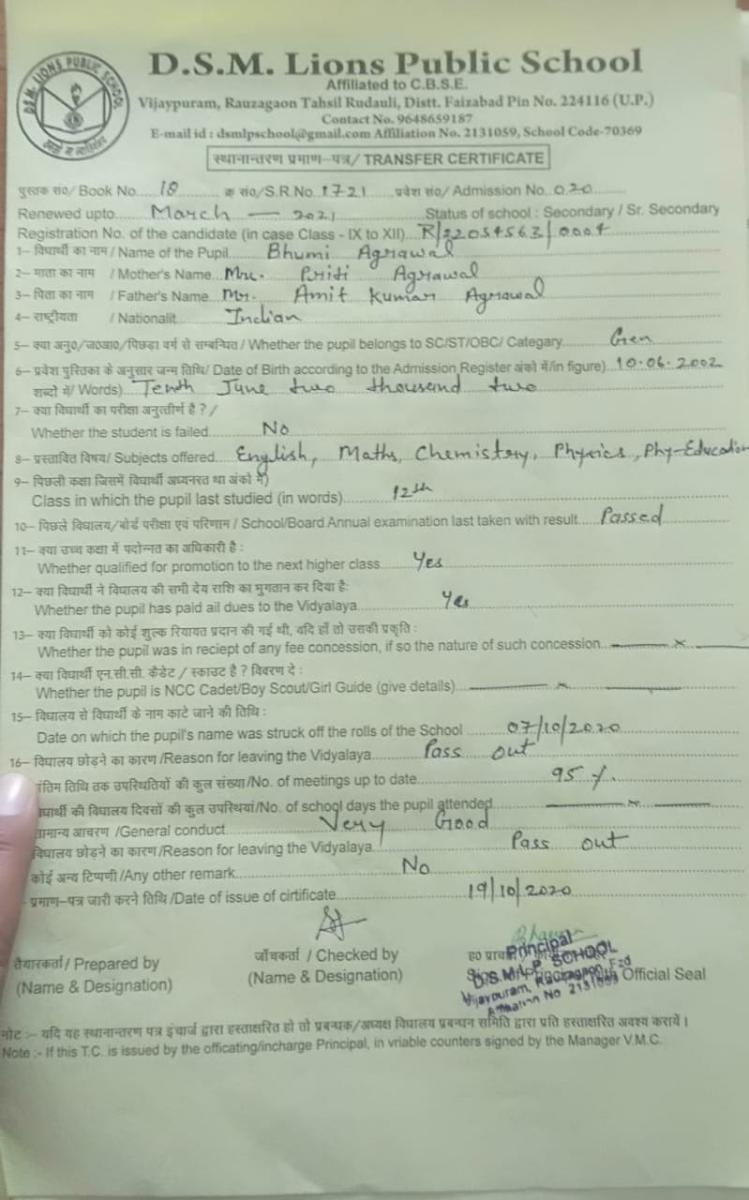 D.S.M. LIONS PUBLIC SCHOOL
D.S.M. Lions Public School
Affiliated to C.B.S.E.
Vijaypuram, Rauzagaon Tahsil Rudauli, Distt. Faizabad Pin No. 224116 (U.P.)
Contact No. 9648659187
E-mail id : dsmlpschool@gmail.com Affiliation No. 2131059, School Code-70369
स्थानान्तरण प्रमाण-पत्र/ TRANSFER CERTIFICATE
पुस्तक सं०/ Book No. 18 क्र सं०/S.R.No. 1721 प्रवेश सं०/ Admission No. 020
Renewed upto March - 2021 Status of school : Secondary / Sr. Secondary
Registration No. of the candidate (in case Class - IX to XII) R/22054563/0004
1- विद्यार्थी का नाम / Name of the Pupil Bhumi Agrawal
2- माता का नाम / Mother's Name Mrs. Priti Agrawal
3- पिता का नाम / Father's Name Mr. Amit Kumar Agrawal
4- राष्ट्रीयता / Nationalit Indian
5- क्या अनु०/ज०आ०/पिछड़ा वर्ग से सम्बन्धित / Whether the pupil belongs to SC/ST/OBC/ Categary Gen
6- प्रवेश पुस्तिका के अनुसार जन्म तिथि/ Date of Birth according to the Admission Register अंको में/in figure) 10.06.2002
शब्दो में/ Words) Tenth June two thousand two
7- क्या विद्यार्थी का परीक्षा अनुत्तीर्ण है ? /
Whether the student is failed No
8- प्रस्तावित विषय/ Subjects offered English, Maths, Chemistry, Physics, Phy-Education
9- पिछली कक्षा जिसमें विद्यार्थी अध्यनरत था अंको में)
Class in which the pupil last studied (in words) 12th
10- पिछले विद्यालय/बोर्ड परीक्षा एवं परिणाम / School/Board Annual examination last taken with result Passed
11- क्या उच्च कक्षा में पदोन्नत का अधिकारी है :
Whether qualified for promotion to the next higher class Yes
12- क्या विद्यार्थी ने विद्यालय की सभी देय राशि का भुगतान कर दिया है:
Whether the pupil has paid ail dues to the Vidyalaya Yes
13- क्या विद्यार्थी को कोई शुल्क रियायत प्रदान की गई थी, यदि हाँ तो उसकी प्रकृति :
Whether the pupil was in reciept of any fee concession, if so the nature of such concession ×
14- क्या विद्यार्थी एन.सी.सी. कैडेट / स्काउट है ? विवरण दे :
Whether the pupil is NCC Cadet/Boy Scout/Girl Guide (give details) ×
15- विद्यालय से विद्यार्थी के नाम काटे जाने की तिथि :
Date on which the pupil's name was struck off the rolls of the School 07/10/2020
16- विद्यालय छोड़ने का कारण /Reason for leaving the Vidyalaya Pass out
अंतिम तिथि तक उपस्थितियों की कुल संख्या/No. of meetings up to date 95 %.
की विद्यालय दिवसों की कुल उपस्थियां/No. of school days the pupil attended ×
आचरण /General conduct Very Good
विद्यालय छोड़ने का कारण/Reason for leaving the Vidyalaya Pass out
कोई अन्य टिप्पणी /Any other remark No
प्रमाण-पत्र जारी करने तिथि /Date of issue of cirtificate 19/10/2020
तैयारकर्ता / Prepared by
(Name & Designation)
जाँचकर्ता / Checked by
(Name & Designation)
Official Seal
Principal
D.S.M.L.P. SCHOOL
Vijaypuram, Rauzagaon, Fzd
Affiliation No. 2131059
नोट :- यदि यह स्थानान्तरण पत्र इंचार्ज द्वारा हस्ताक्षरित हो तो प्रबन्धक/अध्यक्ष विद्यालय प्रबन्धन समिति द्वारा प्रति हस्ताक्षरित अवश्य करायें।
Note :- If this T.C. is issued by the officating/incharge Principal, in vriable counters signed by the Manager V.M.C.